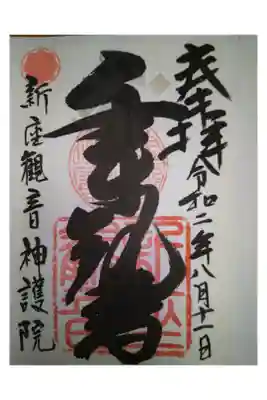 奉拝
令和二年八月十一日
千手観音
新座観音神護院